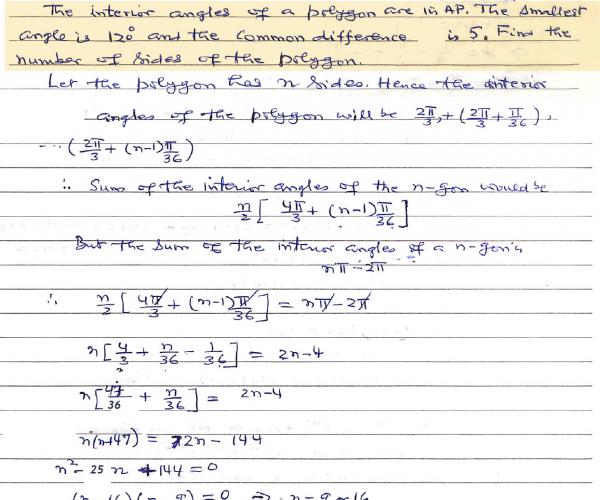 The interior angles of a polygon are in AP. The smallest
angle is 120° and the common difference is 5. Find the
number of sides of the polygon.
Let the polygon has n sides. Hence the interior
angles of the polygon will be 2π/3, + (2π/3 + π/36),
---- (2π/3 + (n-1)π/36)
∴ Sum of the interior angles of the n-gon would be
n/2 [ 4π/3 + (n-1)π/36 ]
But the sum of the interior angles of a n-gon is
nπ - 2π
∴ n/2 [ 4π/3 + (n-1)π/36 ] = nπ - 2π
n [ 4/3 + n/36 - 1/36 ] = 2n-4
n [ 47/36 + n/36 ] = 2n-4
n(n+47) = 72n - 144
n² - 25n + 144 = 0